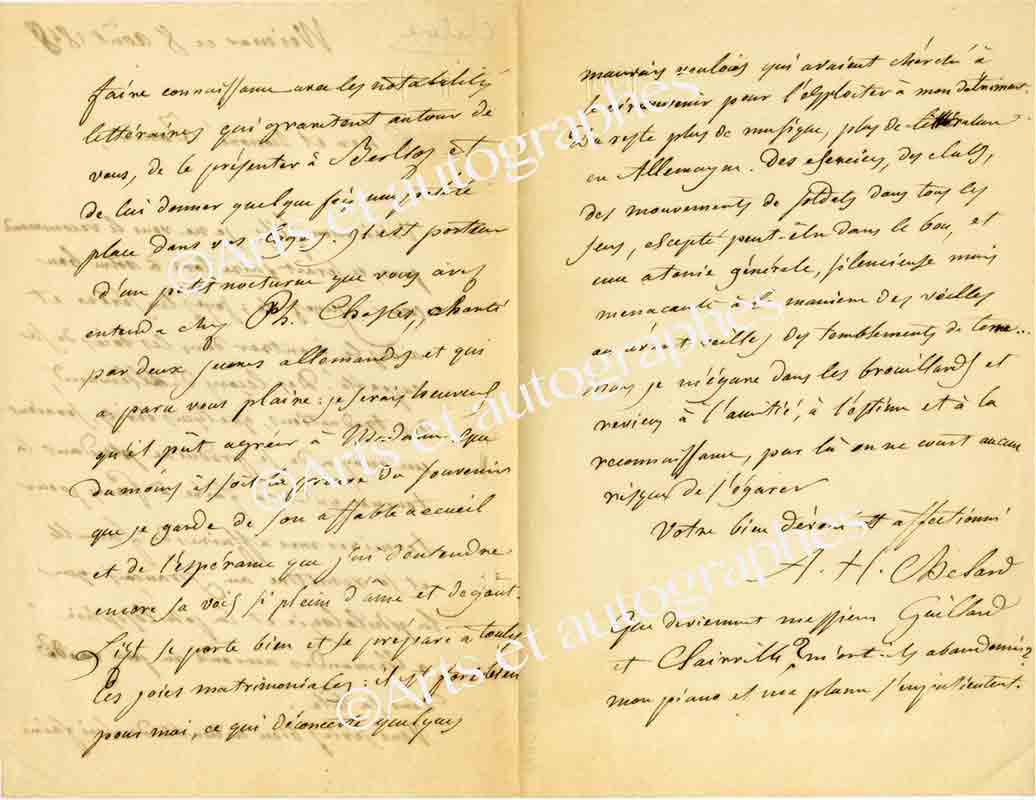 faire connaissance avec les notabilités
littéraires qui gravitent autour de
vous, de le présenter à Berlioz et
de lui donner quelque fois une petite
place dans vos lignes. Il est porteur
d'un petit nocturne que vous avez
entendu chez Ph. Chasles, chanté
par deux jeunes allemandes et qui
a paru vous plaire : je serais heureux
qu'il pût agréer à Madame. Que
du moins il soit la preuve du souvenir
que je garde de son affable accueil
et de l'espérance que j'ai d'entendre
encore sa voix si pleine d'âme et de goût.
Liszt se porte bien et se prépare à toutes
les joies matrimoniales : il est
pour moi, ce qui déconcerte quelques
mauvais vouloirs qui avaient cherché à
le circonvenir pour l'exploiter à mon détriment.
Du reste plus de musique, plus de littérature
en Allemagne. Des exercices, des clubs,
des mouvements de soldats dans tous les
sens, excepté peut-être dans le bon, et
une atonie générale, silencieuse mais
menaçante à la manière des veilles
ou avant veilles des tremblements de terre..
Mais je m'égare dans les brouillards et
reviens à l'amitié, à l'estime et à la
reconnaissance, par là on ne court aucun
risque de s'égarer
Votre bien dévoué et affectionné
A. H. Chelard
Que deviennent messieurs Guillard
et Clairville ? m'ont-ils abandonné ?
mon piano et ma plume s'impatientent.
Weimar ce 8 août 1848
©Arts et autographes
©Arts et autographes
©Arts et autographes